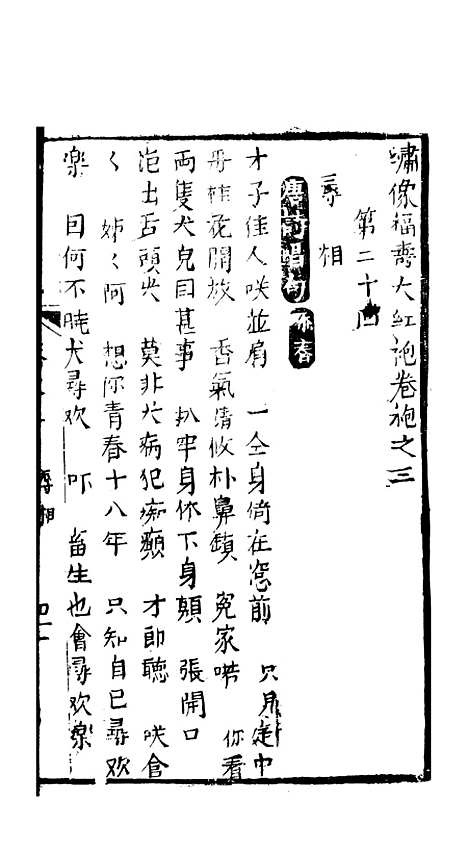 繡像福壽大紅袍卷袍之三
第二十四
辱相
唐詩唱句 佈春
才子佳人咲並肩 一仝身倚在窓前 只見定中
丹桂花開放 香氣清攸朴鼻鑽 冤家喏 你看
両隻犬皃因甚事 扒牢身体下身顛 張開口
沲出舌頭尖 莫非犬病犯痴癲 才郎聽 咲含
く 姊く阿 想你青春十八年 只知自已尋欢
楽 因何不暁犬尋欢 吓 畜生也會尋欢楽